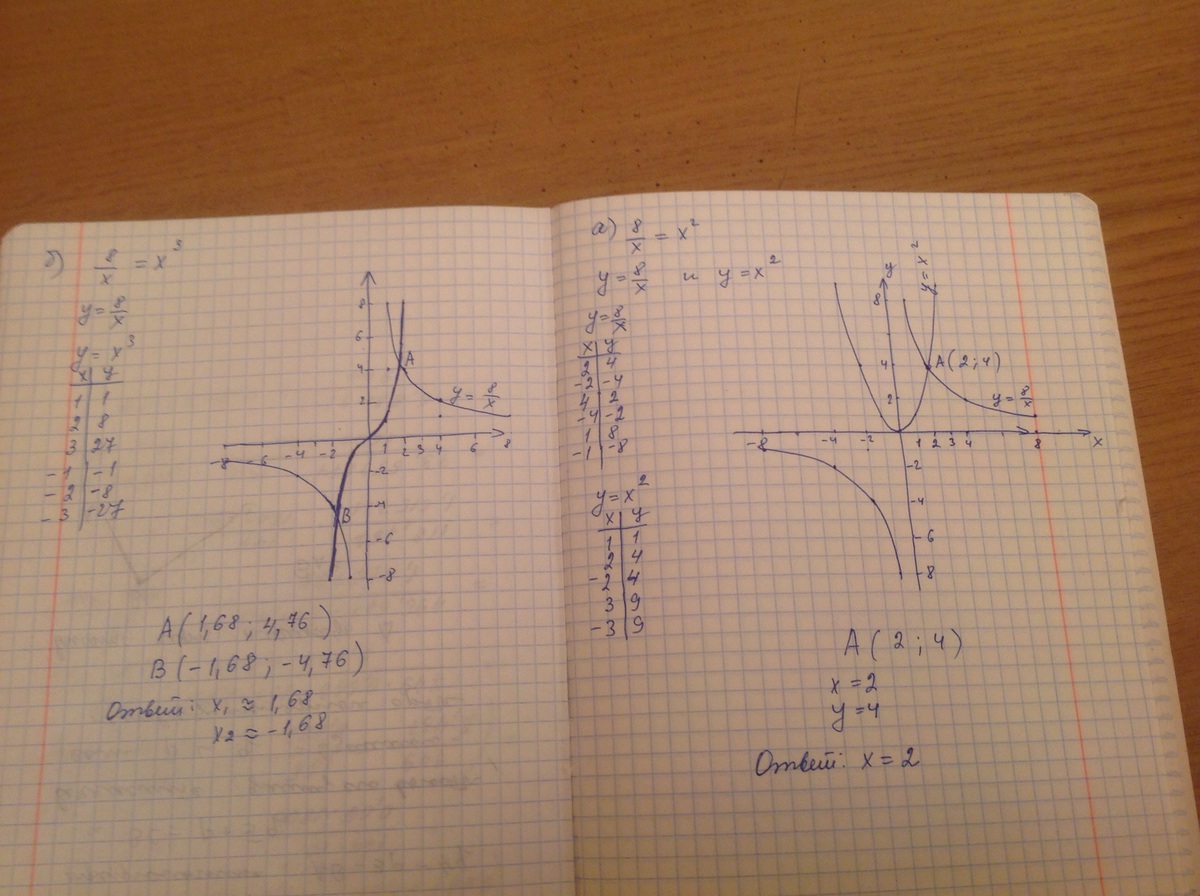 б) 8/x = x³
y = 8/x
y = x³
x | y
1 | 1
2 | 8
3 | 27
-1 | -1
-2 | -8
-3 | -27
8
6
4
2
-8 -6 -4 -2 1 2 3 4 6 8
-2
-4
-6
-8
A
B
y = 8/x
A(1,68; 4,76)
B(-1,68; -4,76)
Ответ: x₁ ≈ 1,68
x₂ ≈ -1,68
а) 8/x = x²
y = 8/x и y = x²
y = 8/x
x | y
2 | 4
-2 | -4
4 | 2
-4 | -2
1 | 8
-1 | -8
y = x²
x | y
1 | 1
2 | 4
-2 | 4
3 | 9
-3 | 9
y
y = x²
8
4
2
A(2; 4)
y = 8/x
-8 -4 -2 1 2 3 4 8 x
-2
-4
-6
-8
A(2; 4)
x = 2
y = 4
Ответ: x = 2